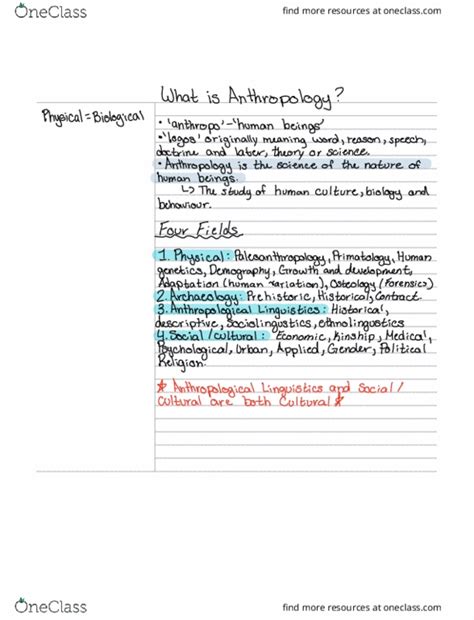 OneClass
find more resources at oneclass.com
What is Anthropology?
Physical = Biological
• 'anthropo' - 'human beings'
• 'logos' originally meaning word, reason, speech,
doctrine and later, theory or science.
• Anthropology is the science of the nature of
human beings.
↳ The study of human culture, biology and
behaviour.
Four Fields
1. Physical: Paleoanthropology, Primatology, Human
genetics, Demography, Growth and development,
Adaptation (human variation), Osteology (Forensics)
2. Archaeology: Prehistoric, Historical, Contract.
3. Anthropological Linguistics: Historical,
descriptive, Sociolingustics, ethnolingustics
4. Social/cultural: Economic, Kinship, Medical,
Psychological, Urban, Applied, Gender, Political
Religion.
* Anthropological Linguistics and Social/
Cultural are both Cultural *
OneClass
find more resources at oneclass.com